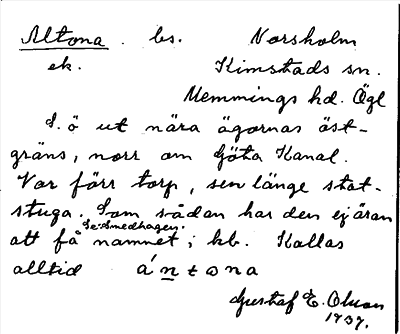 Altona . bs. Norsholm
ek. Kimstads sn.
Memmings hd. Ögl
L. ö ut nära ägornas öst-
gräns, norr om Göta Kanal.
Var förr torp, sen länge stat-
stuga. Som sådan har den ej äran
Se Smedhagen.
att få namnet i kb. Kallas
alltid á n t ω n a
Gustaf E. Olsson
1937.